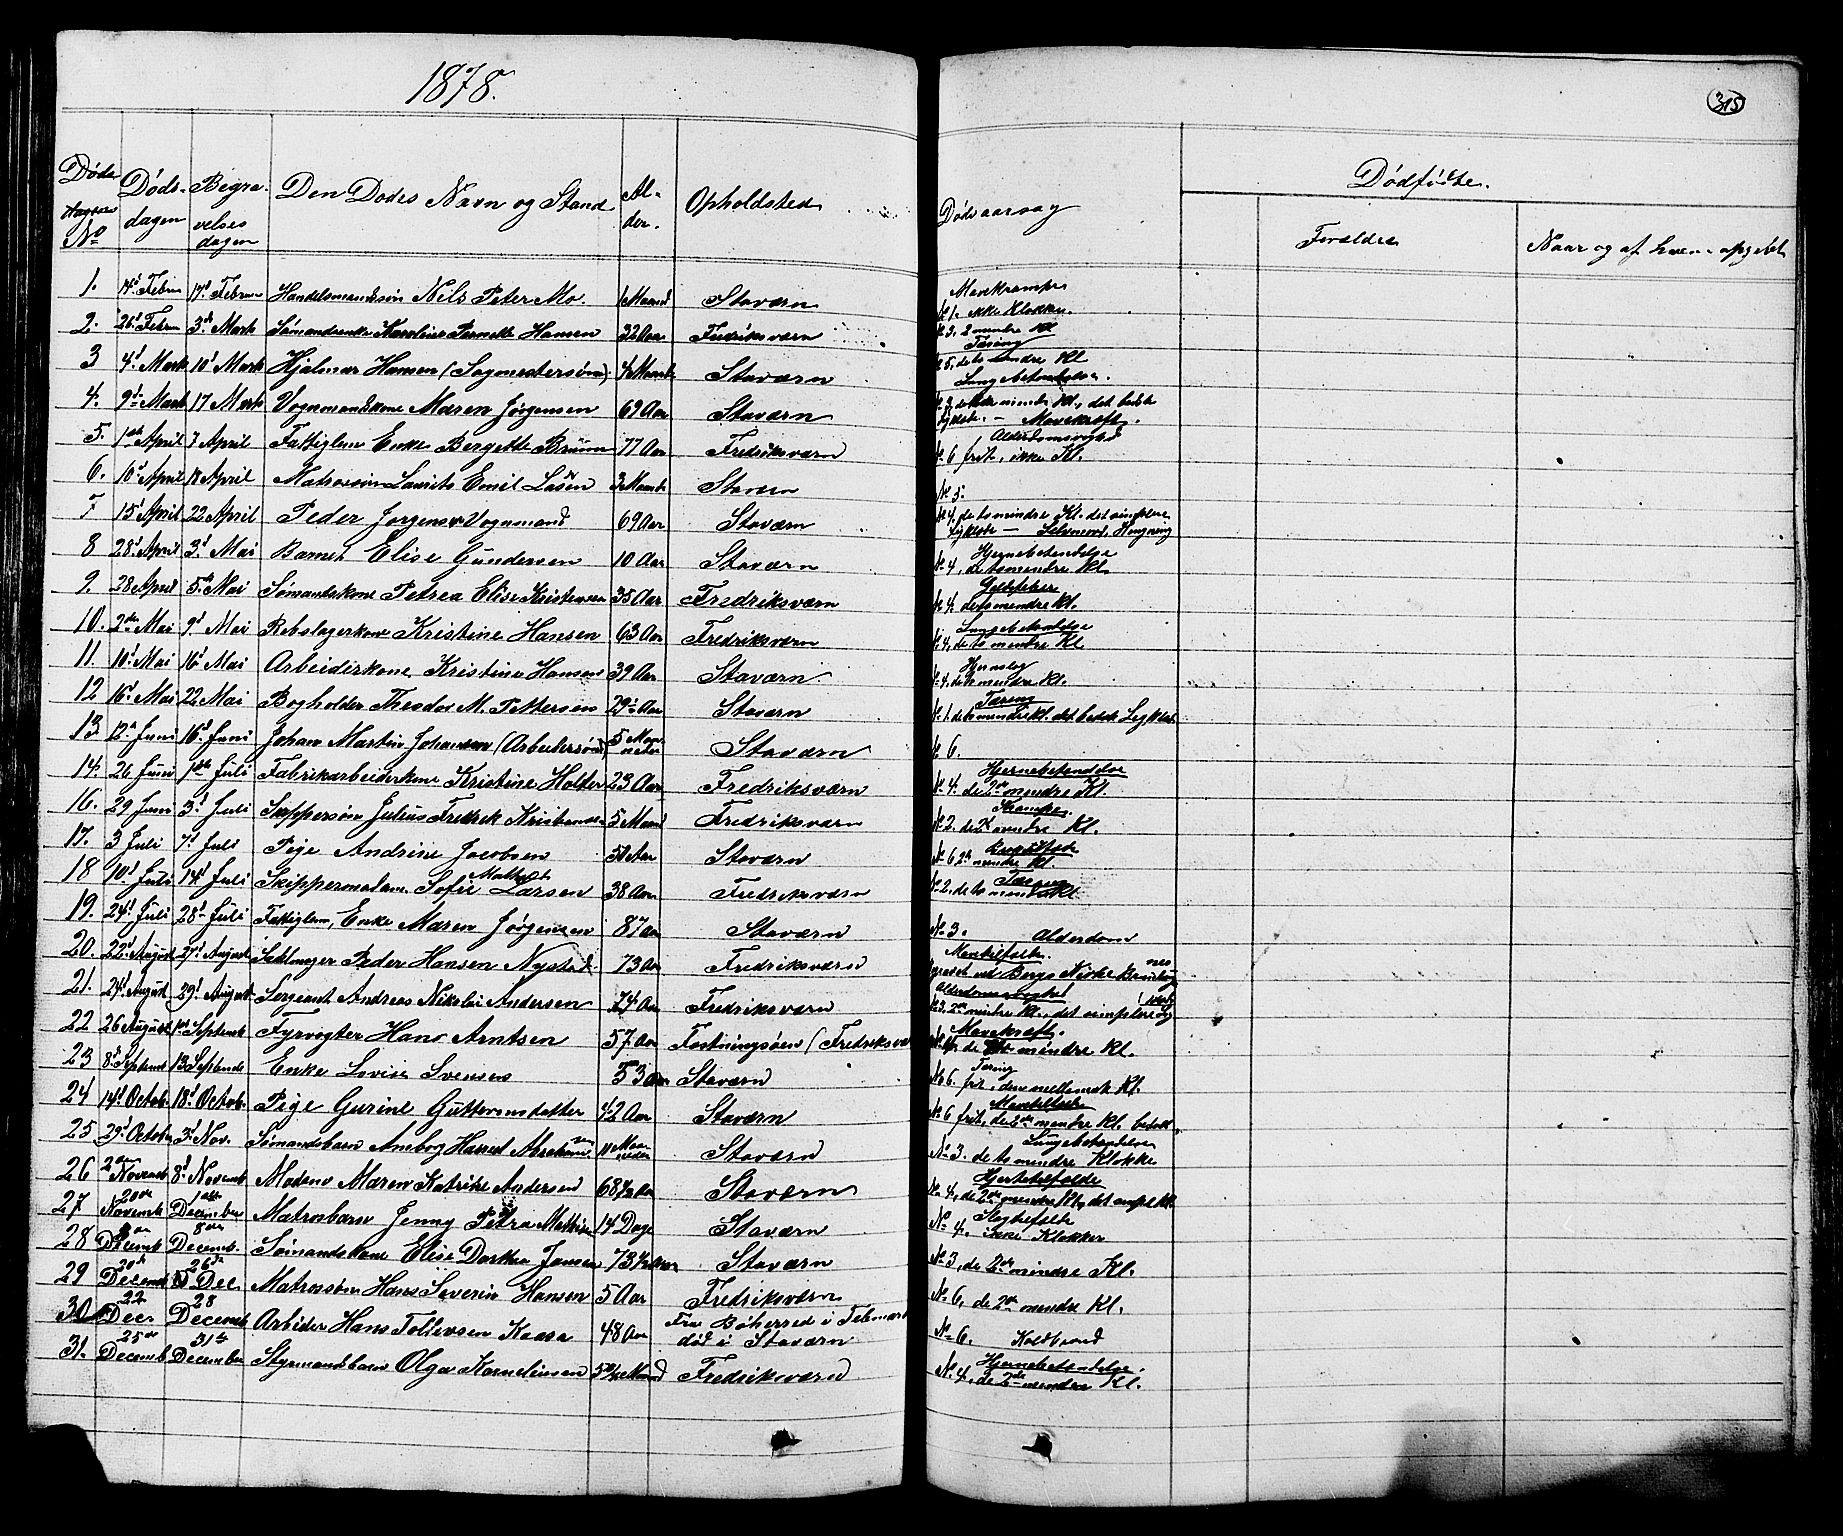 1878.
315
Døde
No
Døds-
dagen
Begra-
velses
dagen
Den Dødes Navn og Stand
Al-
der.
Opholdsted
Dødsaarsag
Dødfødte.
Forældre
Naar og af hvem opgivet
1. 14d Febru 17d Febru Handelsmandssøn Nils Peter Mo. 1 Maaned Staværn Mavekrampe
No 1. ikke Klokke.
2. 26d Febru 3de Marts Sømandsenke Karoline Pernelle Hansen 32 Aar Fredriksværn No 3. 2 mindre Kl
Tæring
3 4d Marts 10d Marts Hjalmar Hansen (Sagmestersøn) 4 Maaneder Staværn No 5. de to mindre Kl
Lungebetændelse.
4. 9d Marts 17 Marts Vognmandskone Maren Jørgensen 69 Aar Staværn No 3. de to mindre Kl., det bedste
Ligklæde. — Mavekræft.
5. 1ste April 7 April Fattiglem Enke Bergette Bruun 77 Aar Fredriksværn Alderdomssvaghed
No 6 frit, ikke Kl.
6. 10d April 18 April Matrossøn Laurits Emil Lasen 3 Maaneder Staværn No 5.
7 15d April 22 April Peder Jørgensen Vognmand 69 Aar Staværn No 4, de to mindre Kl. det simplere
Ligklæde — Selvmord, Hængning
8 28d April 3d Mai Barnet Elise Gundersen 10 Aar Staværn Hjernebetændelse
No 4, de to mindre Kl
9. 28 April 5te Mai Sømandskone Petrea Elise Kristensen 35 Aar Fredriksværn
No 4. de to mindre Kl.
10. 2den Mai 9d Mai Rebslagerkone Kristine Hansen 63 Aar Fredriksværn Lungebetændelse
No 4, de to mindre Kl
11. 10d Mai 16d Mai Arbeiderkone Kristine Hansen 39 Aar Staværn
No 4, de to mindre Kl.
12 16d Mai 22 Mai Bogholder Theodor M. Pettersen 29½ Aar Staværn Tæring
No 1. de to mindre Kl. det bedste Ligklæde
13. 12d Juni 16d Juni Johan Martin Johansen (Arbeidersøn) 5 Maaneder Staværn No 6.
14. 26 Juni 1ste Juli Fabrikarbeiderkone Kristine Holter 23 Aar Fredriksværn Hjernebetændelse
No 4. de 2de mindre Kl.
16. 29 Juni 3d Juli Skippersøn Julius Fredrik Kristensen 5 Maaned Fredriksværn Krampe.
No 2. de 2de mindre Kl.
17. 3 Juli 7d Juli Pige Andrine Jacobsen 50 Aar Staværn
No 6 2de mindre Kl.
18 10d Juli 14d Juli Skippermadam Sofie Mathilde Larsen 38 Aar Fredriksværn Tæring
No 2. de to mindre Kl.
19. 24d Juli 28d Juli Fattiglem, Enke Maren Jørgensen 87 Aar Staværn No 3. Alderdom
20. 22d August 27d August Peder Hansen Nystad 73 Aar Fredriksværn
gravet ved Bergs Kirke Brunlanes
21. 24d August 29d August Sergeant Andreas Nikolai Andersen 74 Aar Fredriksværn Alderdomssvaghed
No 3, 2de mindre Kl., det simplere
22 26 August 1ste Septemb Fyrvogter Hans Arntsen 57 Aar Fæstningsøen (Fredriksværn Mavekræft.
No 4. de 2de mindre Kl.
23 8d Septemb 13 Septembr Enke Lovise Svensen 53 Aar Staværn Tæring
No 6. frit, den mellemste Kl.
24 14d Octob. 18d Octob. Pige Gurine Guttormsdatter 42 Aar Staværn
No 6 frit, de 2de mindre Kl. betalt.
25 29d October 3d Nov. Sømandsbarn Ansborg Hansine Abrahamsen 11 Maaneder Staværn Lungebetændelse
No 3. de to mindre Klokker
26 2den Novemb 8d Novemb. Madame Maren Katrine Andersen 68½ Aar Staværn Hjertefeil
No 4, de 2de mindre Kl., det simple Kl.
27 20de Novemb 1ste December Matrosbarn Jenny Petra Mathisen 14 Dage Staværn
No 4. ikke Klokker
28 Decemb 8de Decemb. Sømandskone Elise Dorthea Jansen 73½ Aar Staværn No 3, de 2de mindre Kl.
29 20de Decemb 26de Dec. Matrossøn Hans Severin Hansen 5 Aar Fredriksværn No 6, de 2de mindre Kl.
30 22 Decr 28 Decemb Arbeider Hans Tollevsen Kaasa 48 Aar Fra Bøherred i Telemark
død i Staværn No 6. Koldbrand
31. 25de Decemb 31te December Styrmandsbarn Olga Kornelinsen Maaned Fredriksværn Hjernebetændelse.
No 4, de 2de mindre Kl.